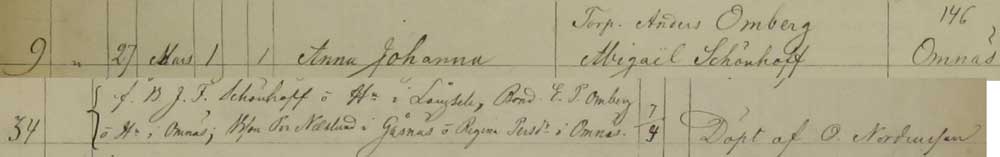 Torp. Anders Omberg 146
9 " 27 Mars 1 1 Anna Johanna Abigaël Schönhoff Omnäs
f. B. J. F. Schönhoff o Hu i Långsele, Bond. E. P. Omberg 7
34 o Hu i Omnäs; Per Näslund i Gäsnäs o Regina Persdr i Omnäs. 4 Döpt af O.